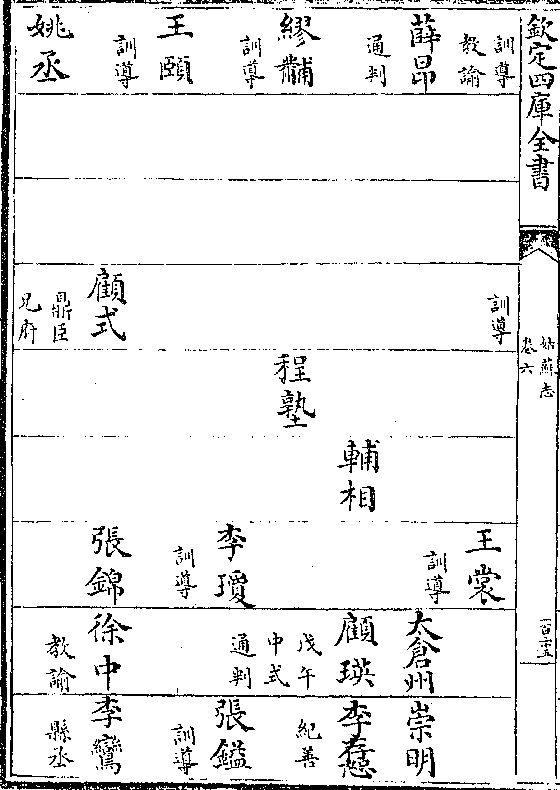 欽定四庫全書
姑蘇志
卷六
訓導
教諭
薛昂
通判
繆黼
訓導
王頤
訓導
姚丞
訓導
顧式
鼎臣
兄府
程塾
輔相
王裳
訓導
李瓊
訓導
張錦
太倉州
顧瑛
戊午
中式
通判
徐中
教諭
崇明
紀善
張鎰
訓導
李鸞
縣丞